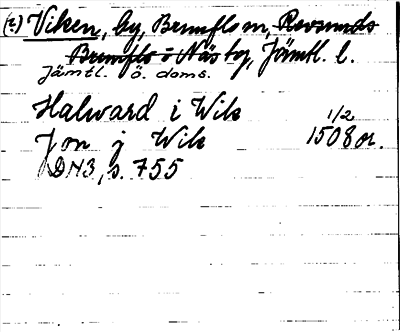 (?) Viken, by, Brunflo sn, Revsunds
Brunflo o Näs tg, Jämtl. l.
Jämtl. ö. doms.
Halward i Wik
Jon j Wik 1/2 1508 or.
DN3, s. 755